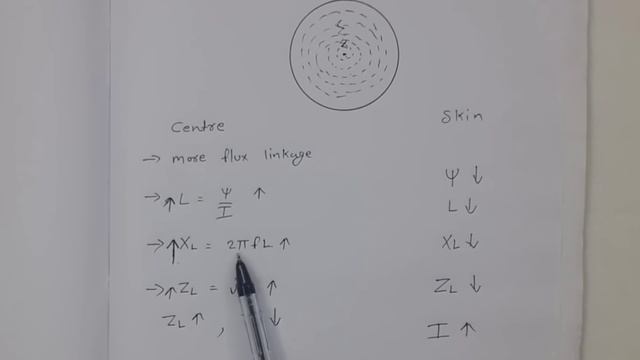 Centre
→ more flux linkage
→ ↑ L = Ψ/I ↑
→ ↑ XL = 2πfL ↑
→ ↑ ZL = ↑
ZL ↑ , ↓
Skin
Ψ ↓
L ↓
XL ↓
ZL ↓
I ↑